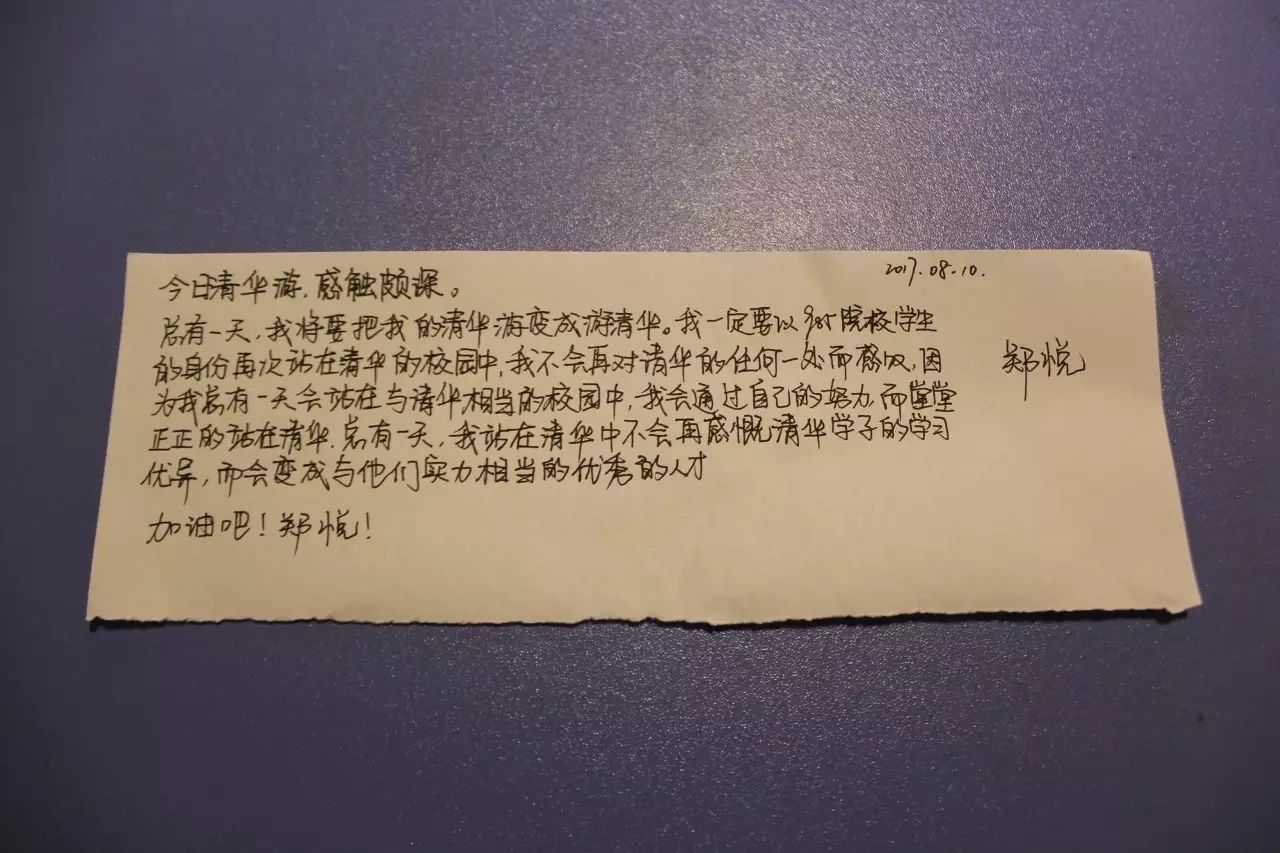 2017.08.10.
今日清华游，感触颇深。
总有一天，我将要把我的清华游变成游清华。我一定要以985院校学生
的身份再次站在清华的校园中，我不会再对清华的任何一处而感叹，因
为我总有一天会站在与清华相当的校园中，我会通过自己的努力而堂堂
正正的站在清华。总有一天，我站在清华中不会再感慨清华学子的学习
优异，而会变成与他们实力相当的优秀的人才
加油吧！郑悦！
郑悦